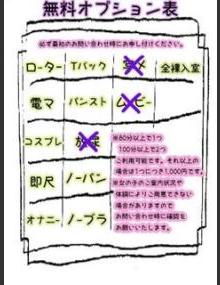 無料オプション表
必ず最初のお問い合わせ時にお申し付けください。
ローター Tバック 全裸入室
電マ パンスト ムービー
コスプレ
即尺 ノーパン
オナニー ノーブラ
※80分以上で1つ
100分以上で2つ
ご利用可能です。それ以上の
場合は1つにつき1,000円です。
※女の子のご案内状況や
体調によりご用意できない
場合がありますので
お問い合わせ時に確認を
お願いいたします。